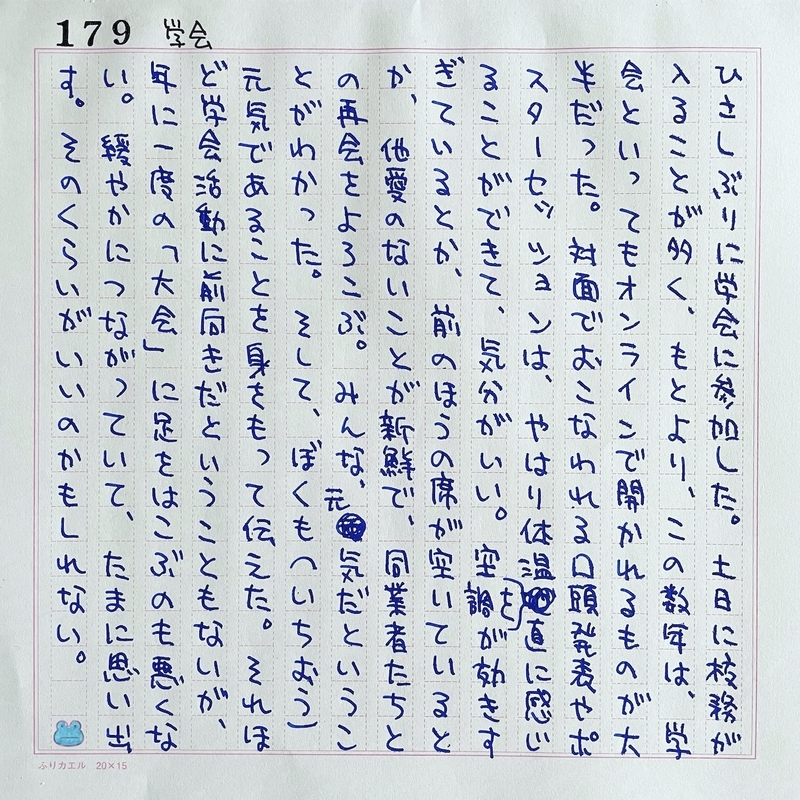 179 学会
ひさしぶりに学会に参加した。土日に校務が
入ることが多く、もとより、この数年は、学
会といってもオンラインで開かれるものが大
半だった。対面でおこなわれる口頭発表やポ
スターセッションは、やはり体温を直に感じ
ることができて、気分がいい。空調が効きす
ぎているとか、前のほうの席が空いていると
か、他愛のないことが新鮮で、同業者たちと
の再会をよろこぶ。みんな、元気だというこ
とがわかった。そして、ぼくも(いちおう)
元気であることを身をもって伝えた。それほ
ど学会活動に前向きだということもないが、
年に一度の「大会」に足をはこぶのも悪くな
い。緩やかにつながっていて、たまに思い出
す。そのくらいがいいのかもしれない。
ふりカエル 20×15